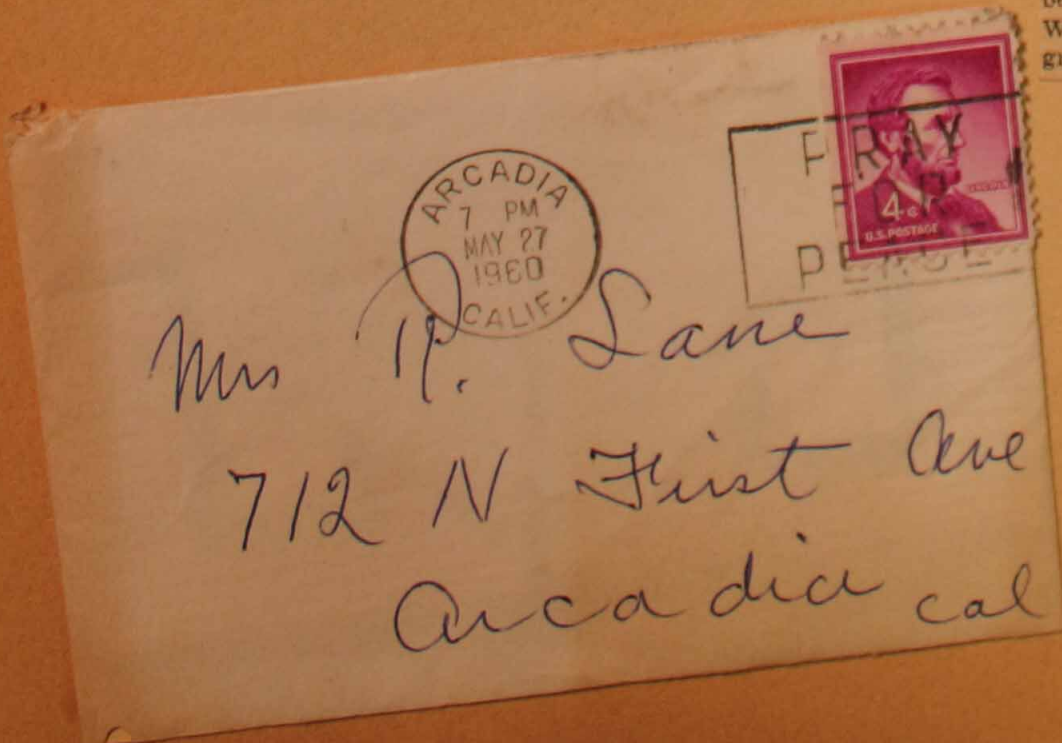 ARCADIA
7 PM
MAY 27
1960
CALIF.
PRAY
FOR
PEACE
LINCOLN
4¢
U.S. POSTAGE
Mrs R. Lane
712 N First Ave
Arcadia Cal